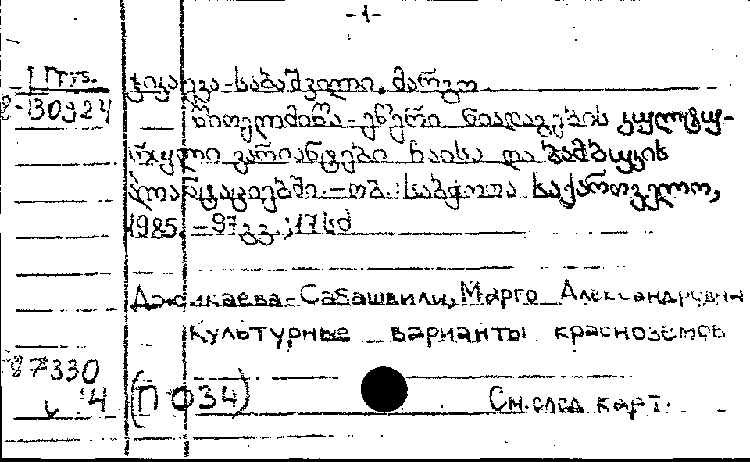 -1-
Груз.
8-30924
ჯიქაევა-საბაშვილი, მარგო
წითელმიწა-ეწერი ნიადაგების კულტუ-
რული ვარიანტები ჩაისა და ბამბუკის
პლანტაციებში. - თბ.: საბჭოთა საქართველო,
1985. - 97 გვ.; 17 სმ
Джикаева-Сабашвили, Марго Александровна
Культурные варианты красноземов
87330
4 (П 034) См. след. карт.